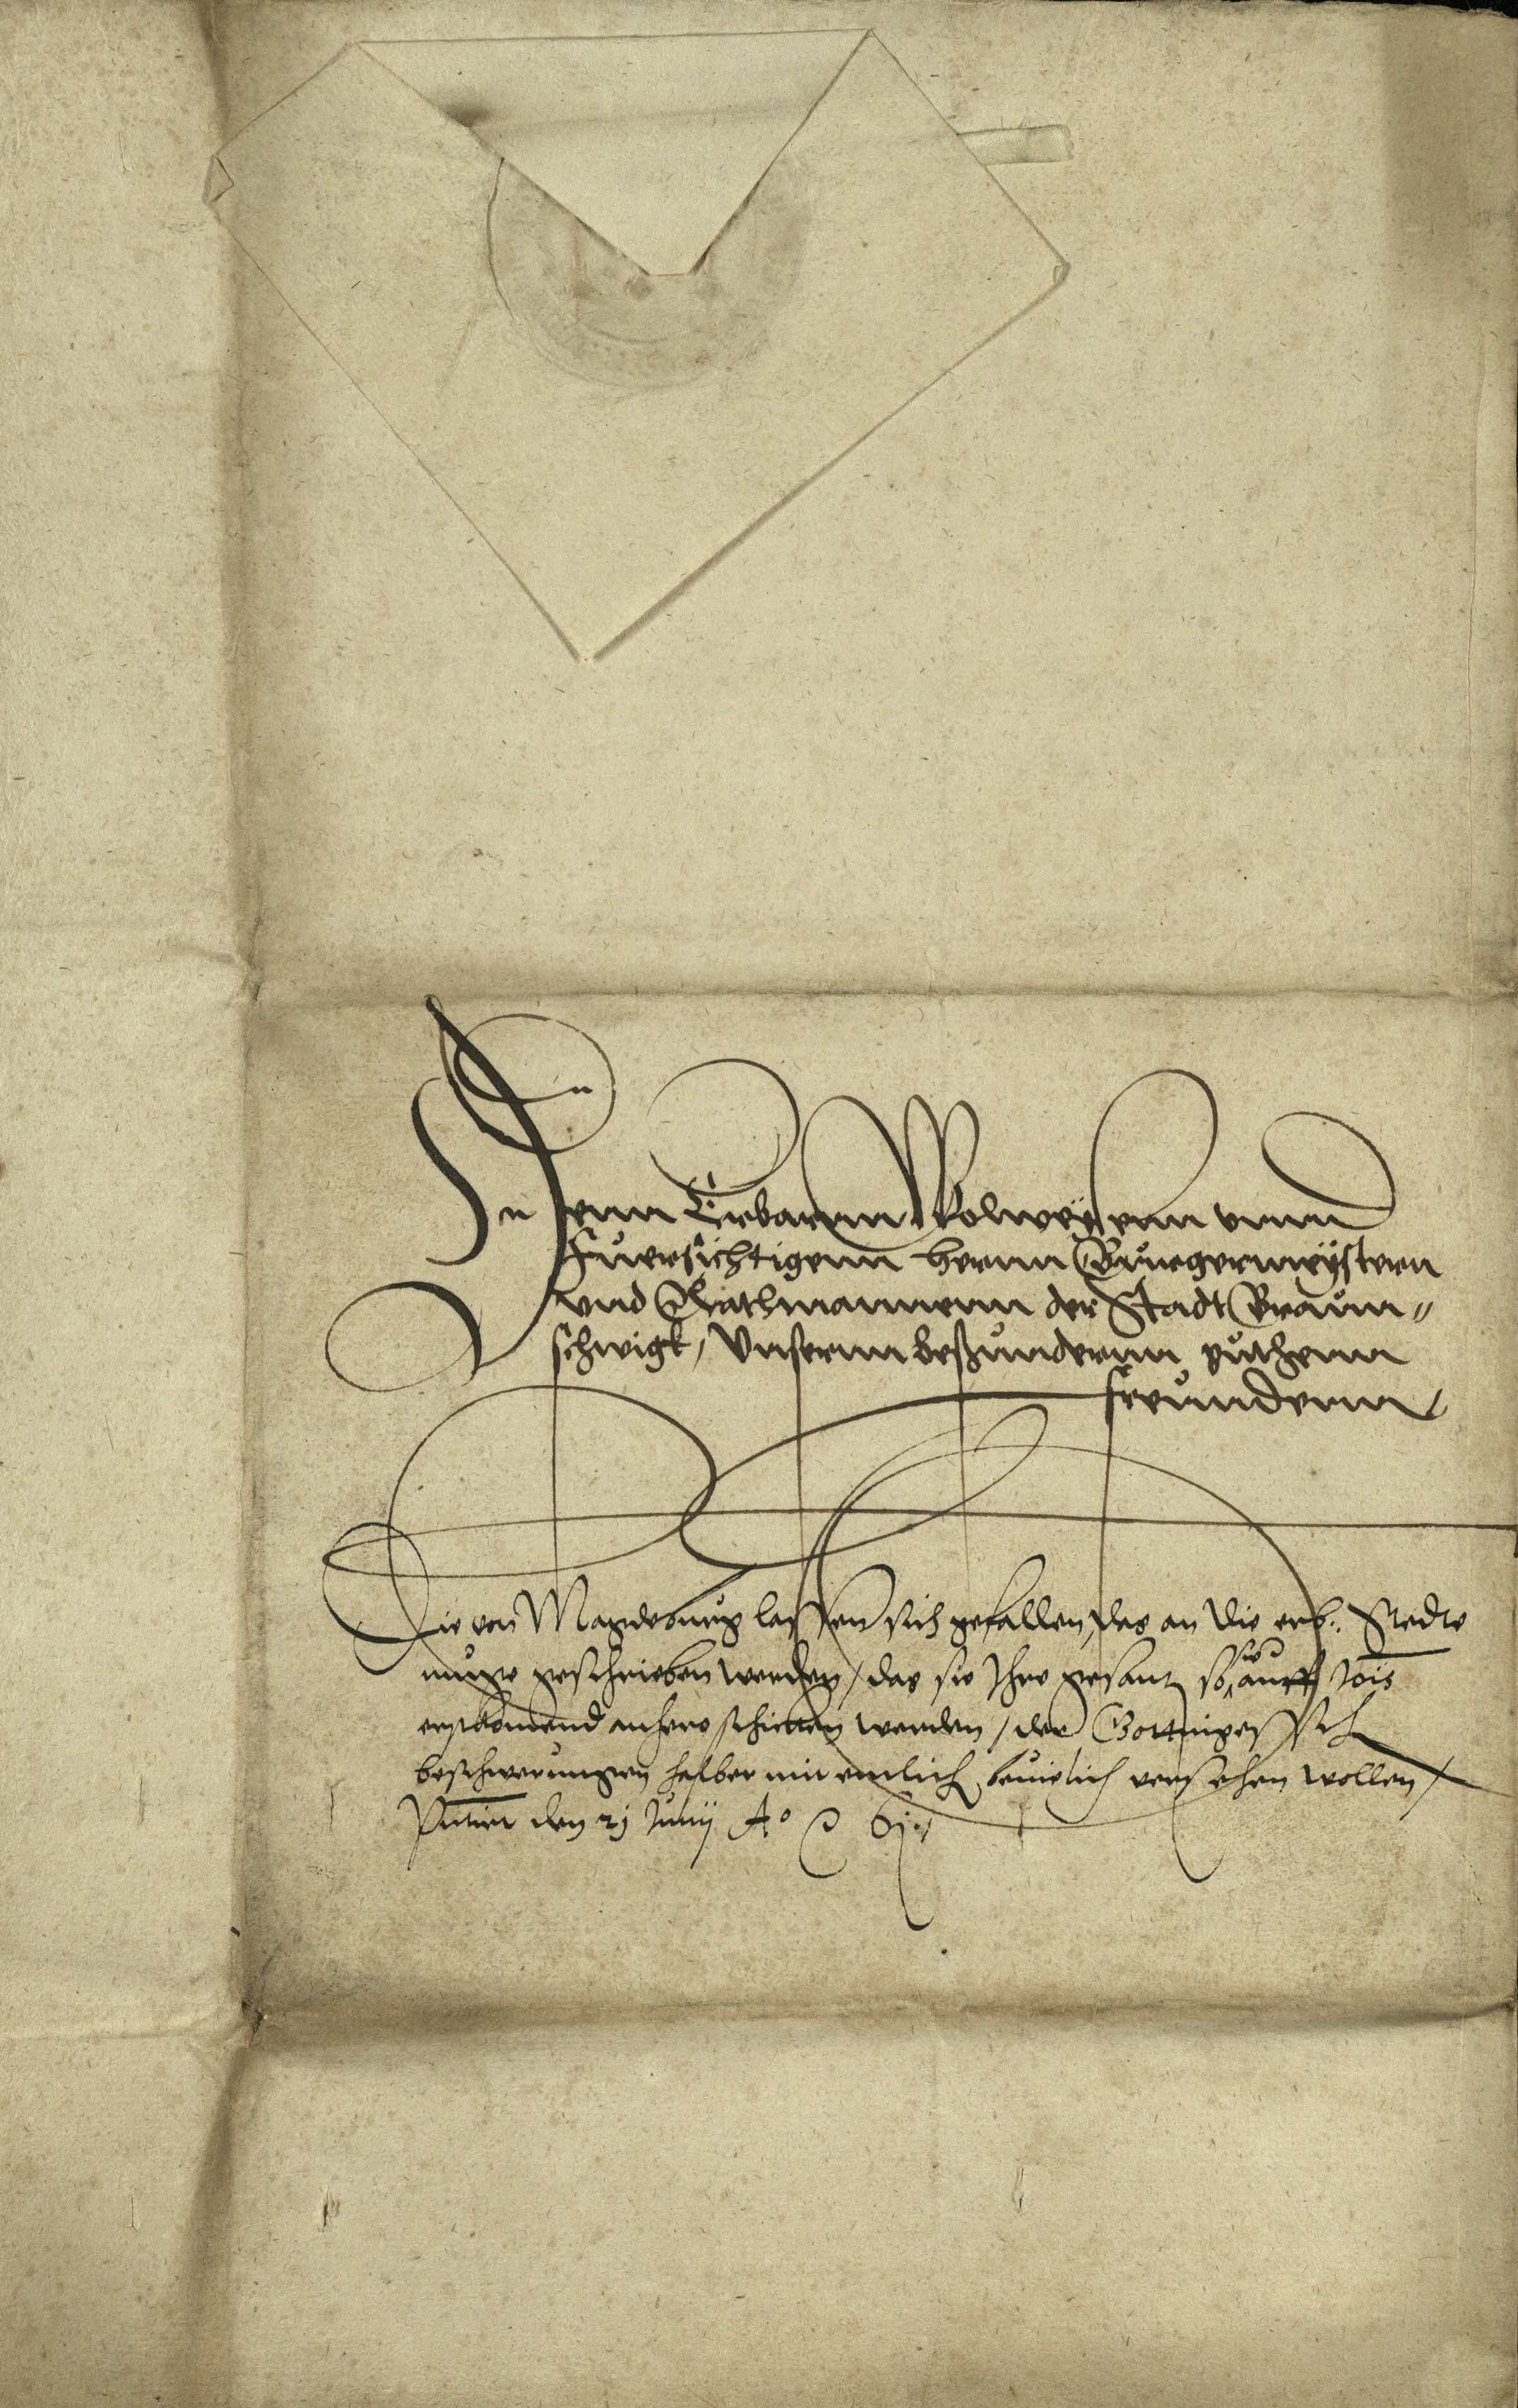 Denn Erbarnn Wolweysenn unnd
Fursichtigenn herrnn Burgermeystern
und Rathmannenn der Stadt Braun-
schwigk, Unsernn beßundernn guthenn
freundenn
Die von Magdeburg lassen sich gefallen, das an die erb. Stedte
muge geschrieben werden, das sie Ihre gesant so sie auff
anhero schicken werden, der Gottingeschen
beschwerungen halber mit bevelich versehen wollen,
den 21 Junij Aº 61.